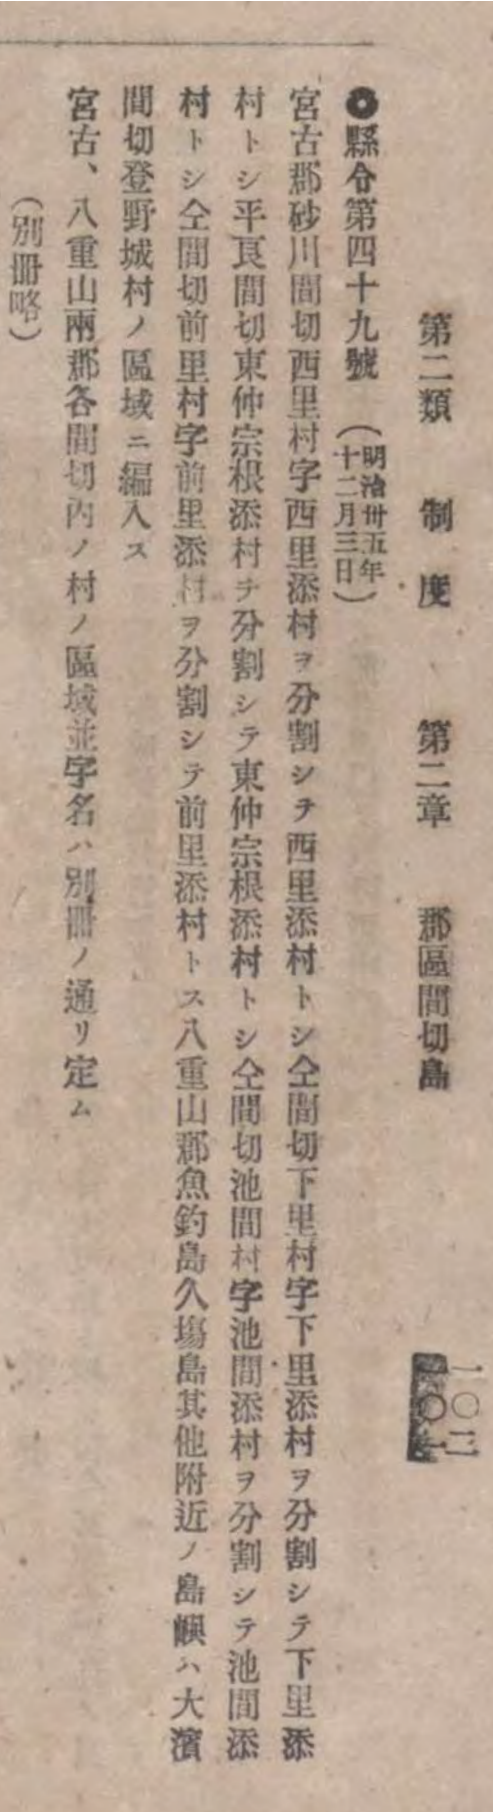 第二類　制度　第二章　郡區間切島
一〇二
◉縣令第四十九號　（明治卅五年
十二月三日）
宮古郡砂川間切西里村字西里添村ヲ分割シテ西里添村トシ仝間切下里村字下里添村ヲ分割シテ下里添
村トシ平良間切東仲宗根添村ヲ分割シテ東仲宗根添村トシ仝間切池間村字池間添村ヲ分割シテ池間添
村トシ仝間切前里村字前里添村ヲ分割シテ前里添村トス八重山郡魚釣島久塲島其他附近ノ島嶼ハ大濱
間切登野城村ノ區域ニ編入ス
宮古、八重山兩郡各間切內ノ村ノ區域並字名ハ別冊ノ通リ定ム
（別冊略）